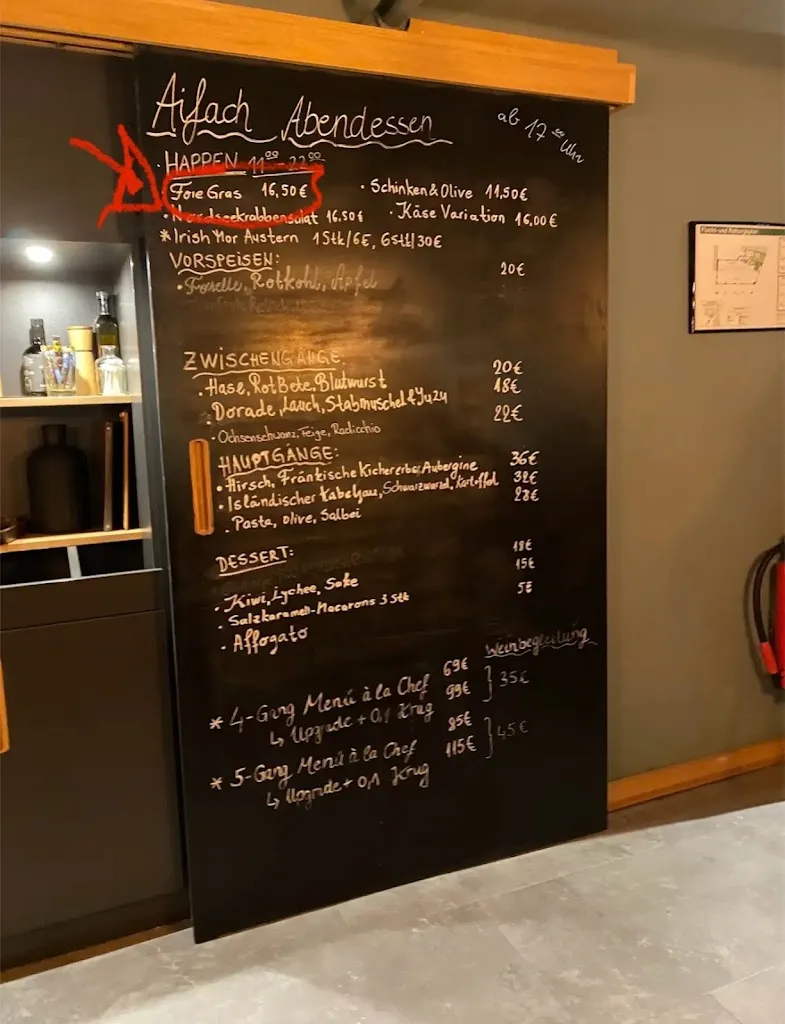 Aifach Abendessen
ab 17⁰⁰ Uhr
· HAPPEN 11⁰⁰-22⁰⁰
Foie Gras 16,50€ · Schinken & Olive 11,50€
· Nordseekrabbensalat 16.50€ · Käse Variation 16,00€
* Irish Mor Austern 1Stk/6€, 6Stk/30€
VORSPEISEN:
· Forelle, Rotkohl, Apfel 20€
ZWISCHENGÄNGE:
· Hase, Rot Bete, Blutwurst 20€
· Dorade, Lauch, Stabmuschel & Yuzu 18€
· Ochsenschwanz, Feige, Radicchio 22€
HAUPTGÄNGE:
· Hirsch, Fränkische Kichererbse, Aubergine 36€
· Isländischer Kabeljau, Schwarzwurzel, Kartoffel 32€
· Pasta, Olive, Salbei 28€
DESSERT:
· Kiwi, Lychee, Sake 18€
· Salzkaramell-Macarons 3 Stk 15€
· Affogato 5€
Weinbegleitung
* 4-Gang Menü à la Chef 69€
↳ Upgrade + 0,1 Krug 99€ } 35€
* 5-Gang Menü à la Chef 85€
↳ Upgrade + 0,1 Krug 115€ } 45€